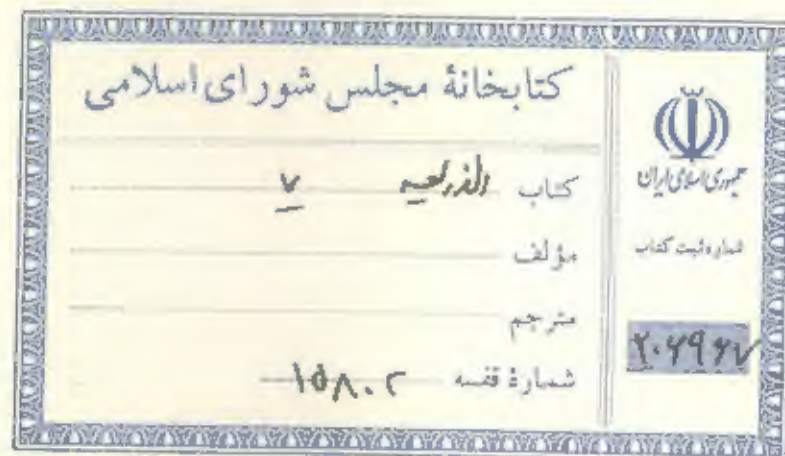 کتابخانهٔ مجلس شورای اسلامی
کتاب الذریعه ۷
مؤلف
مترجم
شمارهٔ قفسه ۱۵۸۰۲
جمهوری اسلامی ایران
شماره ثبت کتاب
۲۰۶۹۶۷